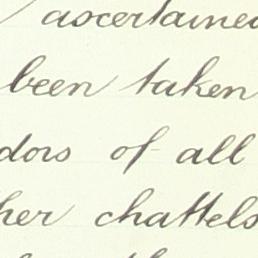 ascertained
been taken
dors of all
her chattels